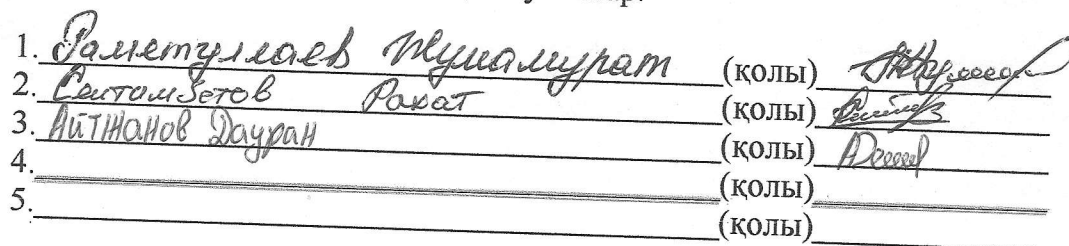 1. Раметуллаев Жумамурат (қолы)
2. Сеитамбетов Рахат (қолы)
3. Айтжанов Дауран (қолы)
4. (қолы)
5. (қолы)